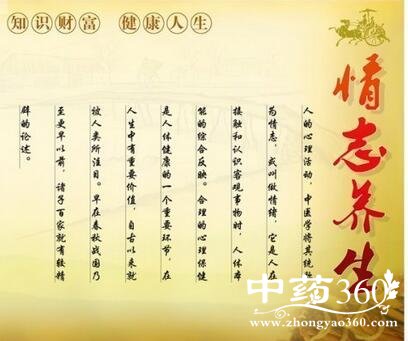 知识财富 健康人生
情志养生
人的心理活动，中医学将其统称
为情志，或叫做情绪，它是人在
接触和认识客观事物时，人体本
能的综合反映。合理的心理保健
是人体健康的一个重要环节，在
人生中有重要价值，自古以来就
被人类所注目。早在春秋战国乃
至更早以前，诸子百家就有较精
辟的论述。
中药360
www.zhongyao360.com